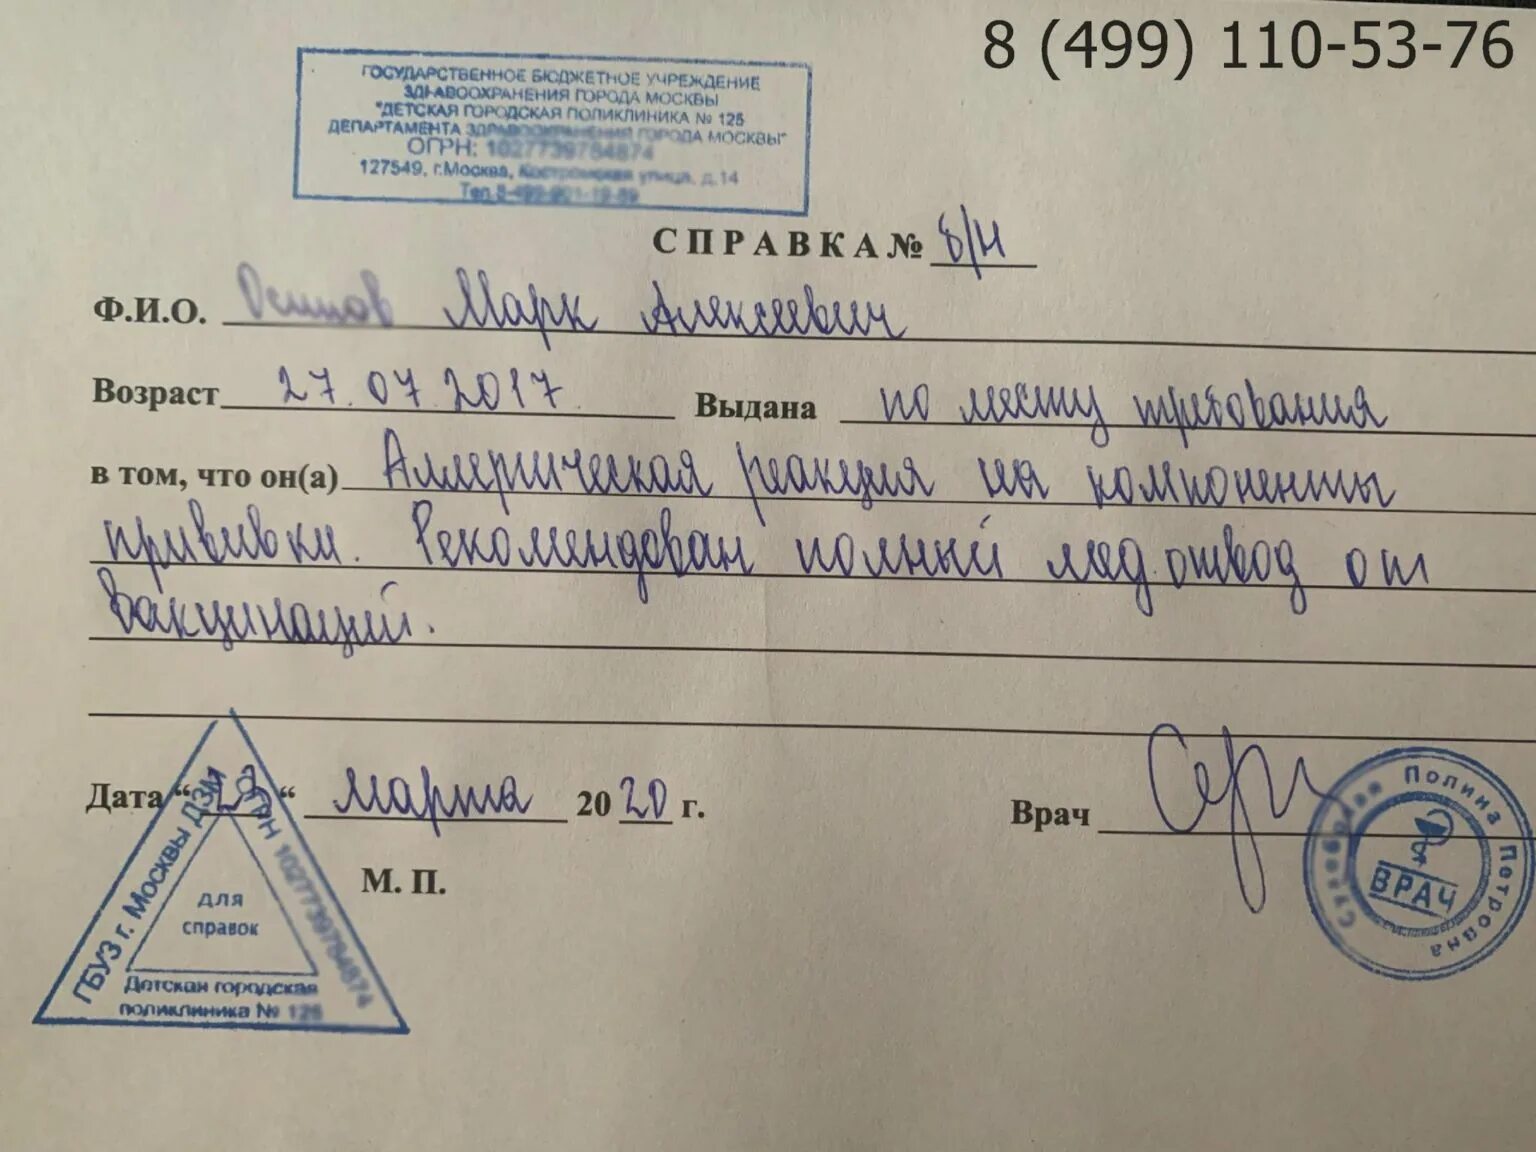 8 (499) 110-53-76
ГОСУДАРСТВЕННОЕ БЮДЖЕТНОЕ УЧРЕЖДЕНИЕ
ЗДРАВООХРАНЕНИЯ ГОРОДА МОСКВЫ
"ДЕТСКАЯ ГОРОДСКАЯ ПОЛИКЛИНИКА № 125
ДЕПАРТАМЕНТА ЗДРАВООХРАНЕНИЯ ГОРОДА МОСКВЫ"
ОГРН:
127549, г.Москва, улица, д.14
СПРАВКА № б/н
Ф.И.О. Марк Алексеевич
Возраст 27.07.2017 Выдана по месту требования
в том, что он(а) Аллергическая реакция на компоненты
прививки. Рекомендован полный мед.отвод от
вакцинаций.
Дата “23“ марта 2020 г.
Врач
М. П.
ГБУЗ г. Москвы ДЗМ
ОГРН
для
справок
Детская городская
поликлиника №
Полина Петровна
ВРАЧ